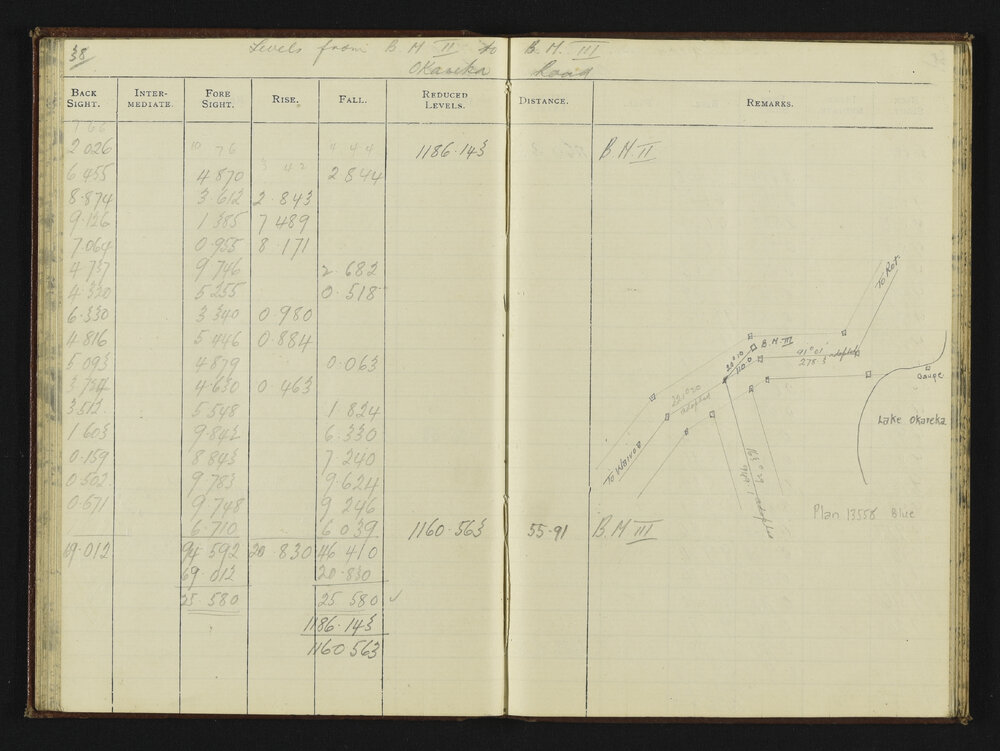 38
Levels from B M II to B. M. III
Okareka Road
BACK SIGHT. INTER-MEDIATE. FORE SIGHT. RISE. FALL. REDUCED LEVELS. DISTANCE. REMARKS.
7 66
2 026 10 76 4 44 1186.143 B.M. II
3 42
6.455 4.870 2 844
8.874 3.612 2 843
9.126 1 385 7 489
7.064 0.955 8.171
4.737 9.746 2.682
4.320 5 255 0.518
6.330 3 340 0.980
4.816 5 446 0.884
5 093 4879 0.063
3.724 4.630 0.463
3.512 5 548 1.824
1 603 9.842 6.330
0.159 8 843 7.240
0.502 9.783 9.624
0.671 9 748 9 246
6.710 6 039 1160.563 55.91 B.M III
69.012 94 592 20.830 46 410
69.012 20.830
25 580 25 580 ✓
1186.143
1160 563
To Rot.
B M III
91°01'
278.3 adopted
110.0
adopted
Gauge
Lake Okareka
To Wairoa
adopted
Plan 13558 Blue